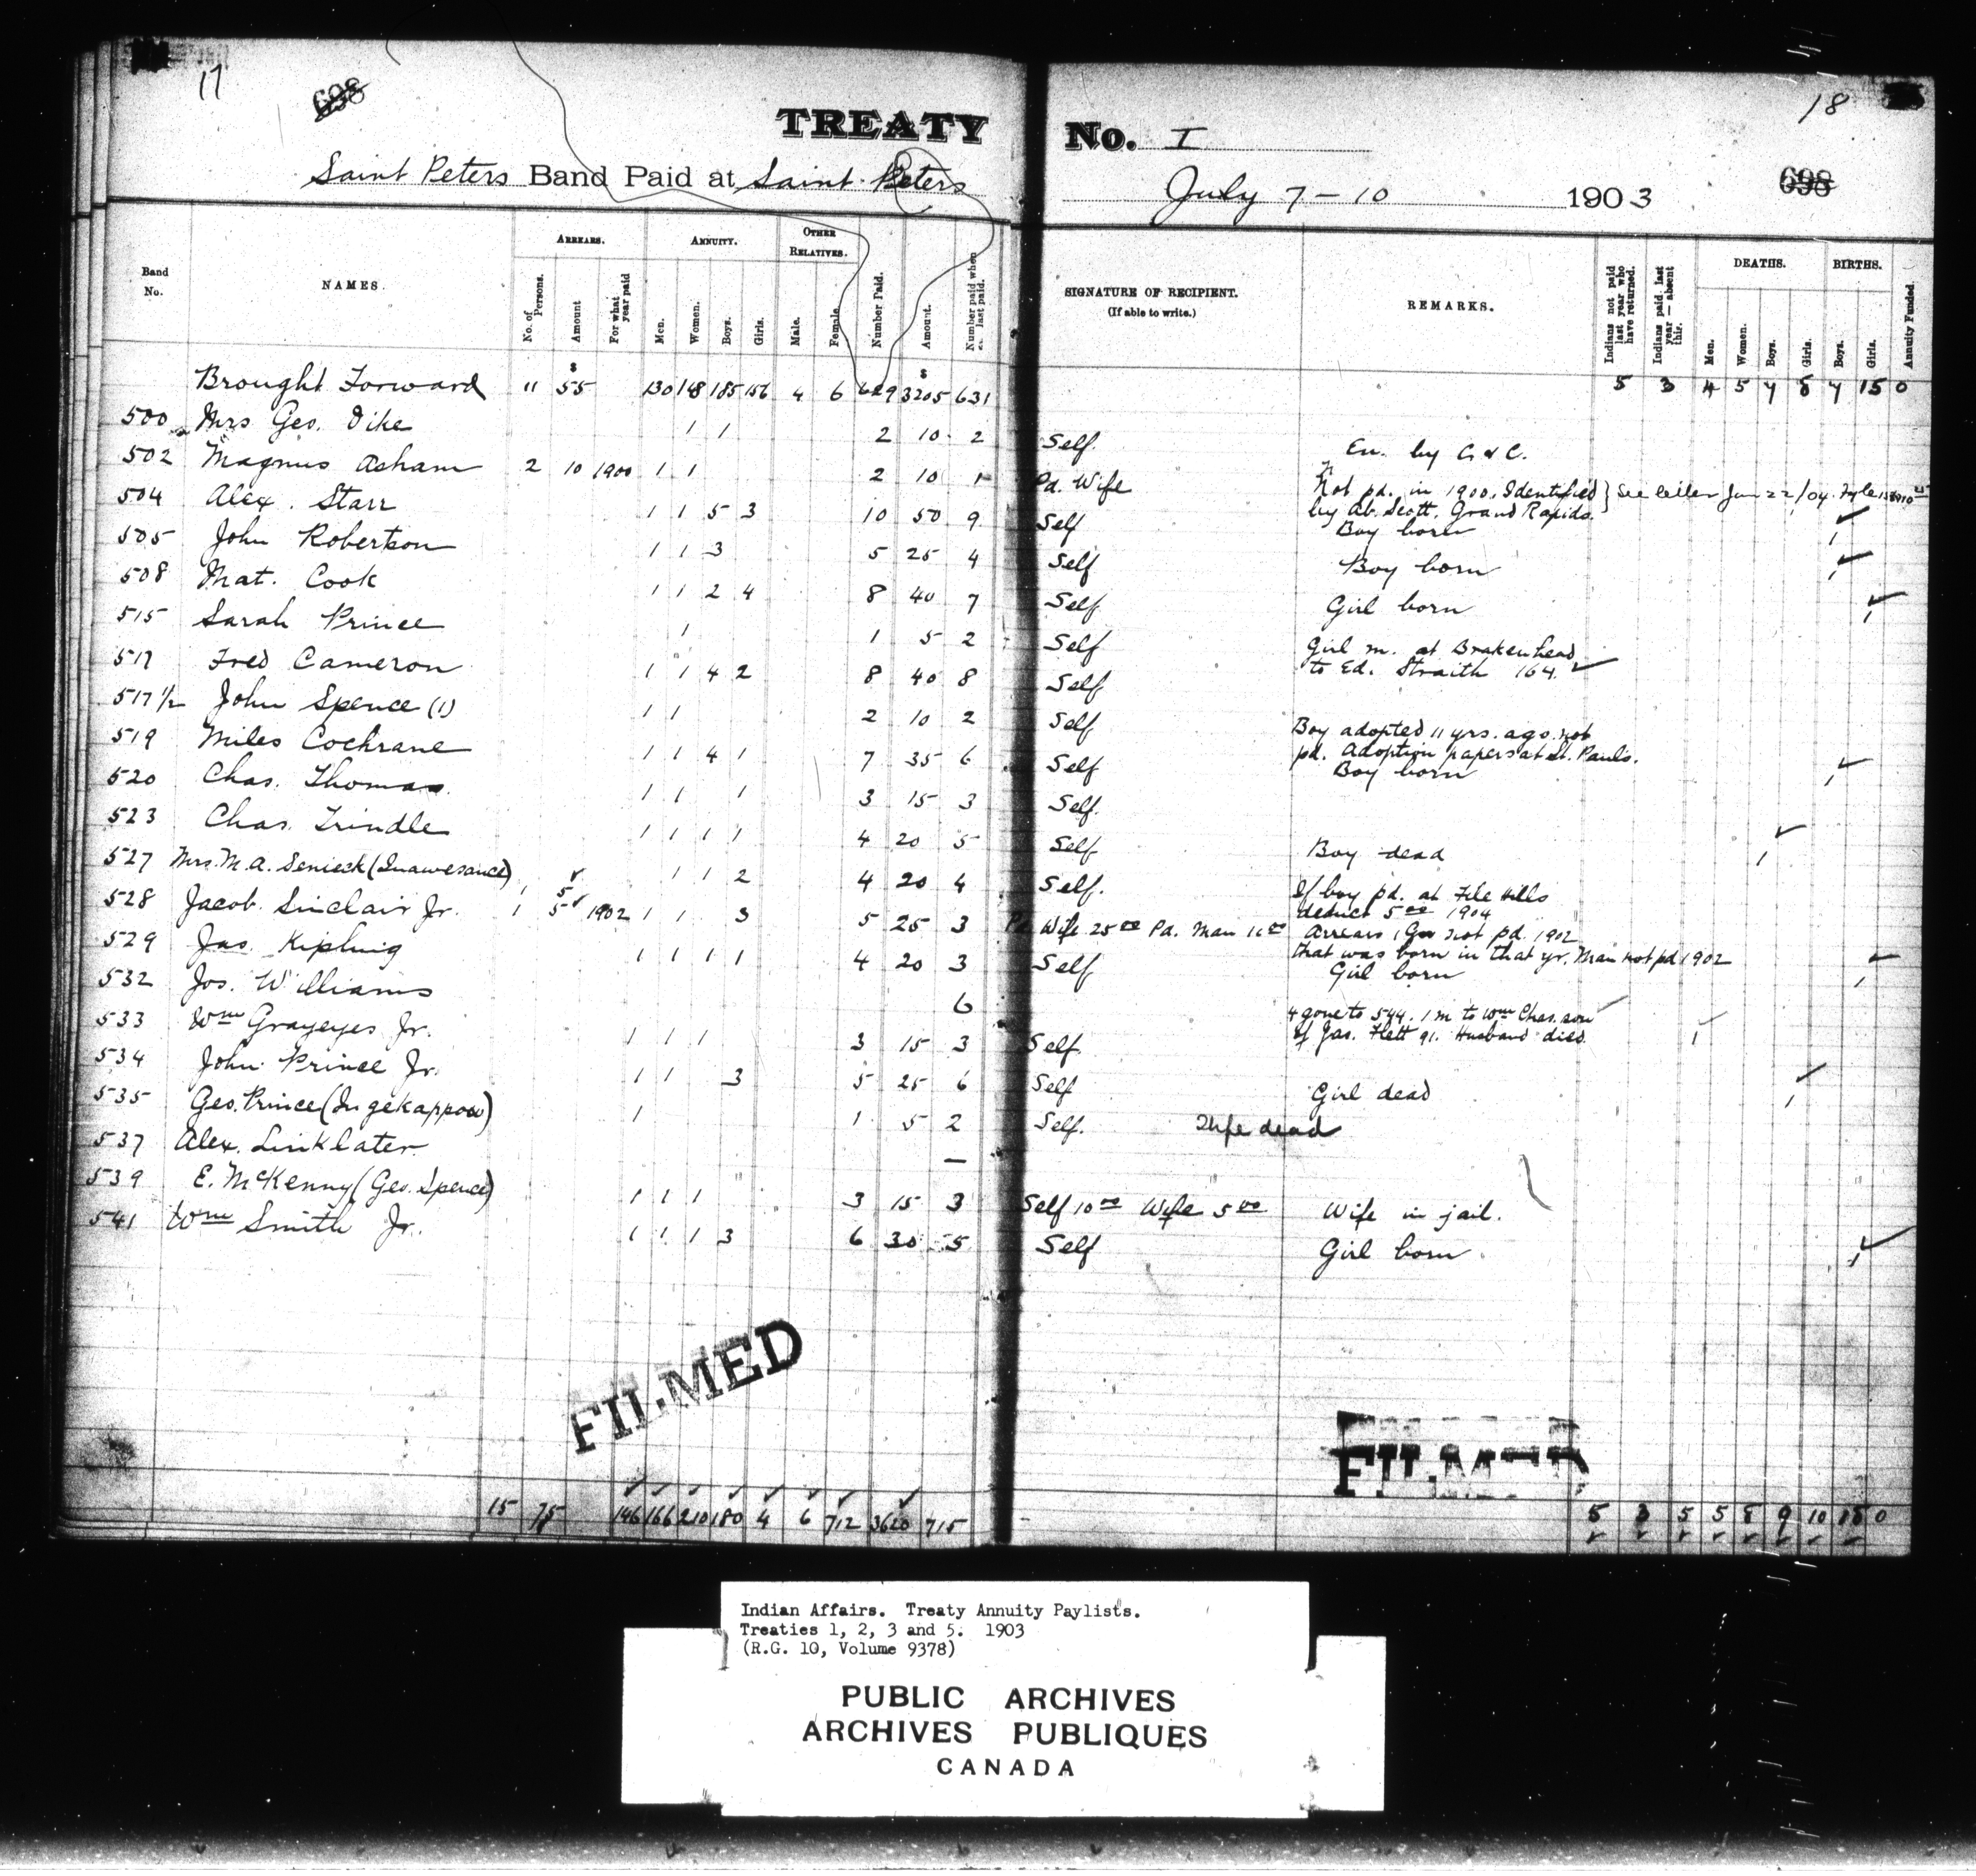 17 18
698
TREATY No. I
Saint Peters Band Paid at Saint Peters July 7-10 1903
698
Band No. NAMES. ARREARS. No. of Persons. Amount For what year paid ANNUITY. Men. Women. Boys. Girls. OTHER RELATIVES. Male. Female. Number Paid. Amount. Number paid when last paid. SIGNATURE OF RECIPIENT. (If able to write.) REMARKS. Indians not paid last year who have returned. Indians paid last year — absent this. DEATHS. Men. Women. Boys. Girls. BIRTHS. Boys. Girls. Annuity Funded.
Brought Forward 11 $ 55 130 148 185 156 4 6 629 $ 3205 631 5 3 4 5 7 8 7 15 0
500 Mrs Geo. Dike 1 1 2 10 2 Self. En. by C & C.
502 Magnus Asham 2 10 1900 1 1 2 10 1 Pd. Wife Not pd. in 1900. Identified by Ab. Scott. Grand Rapids. } See letter Jan 22/04.
504 Alex. Starr 1 1 5 3 10 50 9 Self Boy born 1
505 John Robertson 1 1 3 5 25 4 Self Boy born 1
508 Mat. Cook 1 1 2 4 8 40 7 Self Girl born 1
515 Sarah Prince 1 1 5 2 Self Girl m. at Brokenhead to Ed. Straith 164.
517 Fred Cameron 1 1 4 2 8 40 8 Self
517 1/2 John Spence (1) 1 1 2 10 2 Self Boy adopted 11 yrs. ago. not pd. Adoption papers at St. Pauls.
519 Miles Cochrane 1 1 4 1 7 35 6 Self Boy born 1
520 Chas. Thomas 1 1 1 3 15 3 Self.
523 Chas. Trindle 1 1 1 1 4 20 5 Self Boy dead 1
527 Mrs. M. A. Senieck (Inawesance) 1 1 2 4 20 4 Self. If boy pd. at File Hills deduct 5.00 1904
528 Jacob Sinclair Jr. 1 1 5 5 1902 1 1 3 5 25 3 Pd. Wife 25.00 Pd. Man Arrears 1 G not pd. 1902 that was born in that yr. Man not pd 1902
529 Jas. Kipling 1 1 1 1 4 20 3 Self Girl born 1
532 Jos. Williams 6 4 gone to 544. 1 m to Wm Chas. son of Jas. Flett 91. Husband died. 1
533 Wm Grayeyes Jr. 1 1 1 3 15 3 Self.
534 John Prince Jr. 1 1 3 5 25 6 Self Girl dead 1
535 Geo. Prince (Ingekappow) 1 1 5 2 Self. Wife dead
537 Alex. Linklater —
539 E. McKenny (Geo. Spence) 1 1 1 3 15 3 Self 10.00 Wife 5.00 Wife in jail.
541 Wm Smith Jr. 1 1 1 3 6 30 5 Self Girl born 1
FILMED FILMED
15 75 146 166 210 180 4 6 712 3620 715 5 3 5 5 8 9 10 18 0
Indian Affairs. Treaty Annuity Paylists.
Treaties 1, 2, 3 and 5. 1903
(R.G. 10, Volume 9378)
PUBLIC ARCHIVES
ARCHIVES PUBLIQUES
CANADA